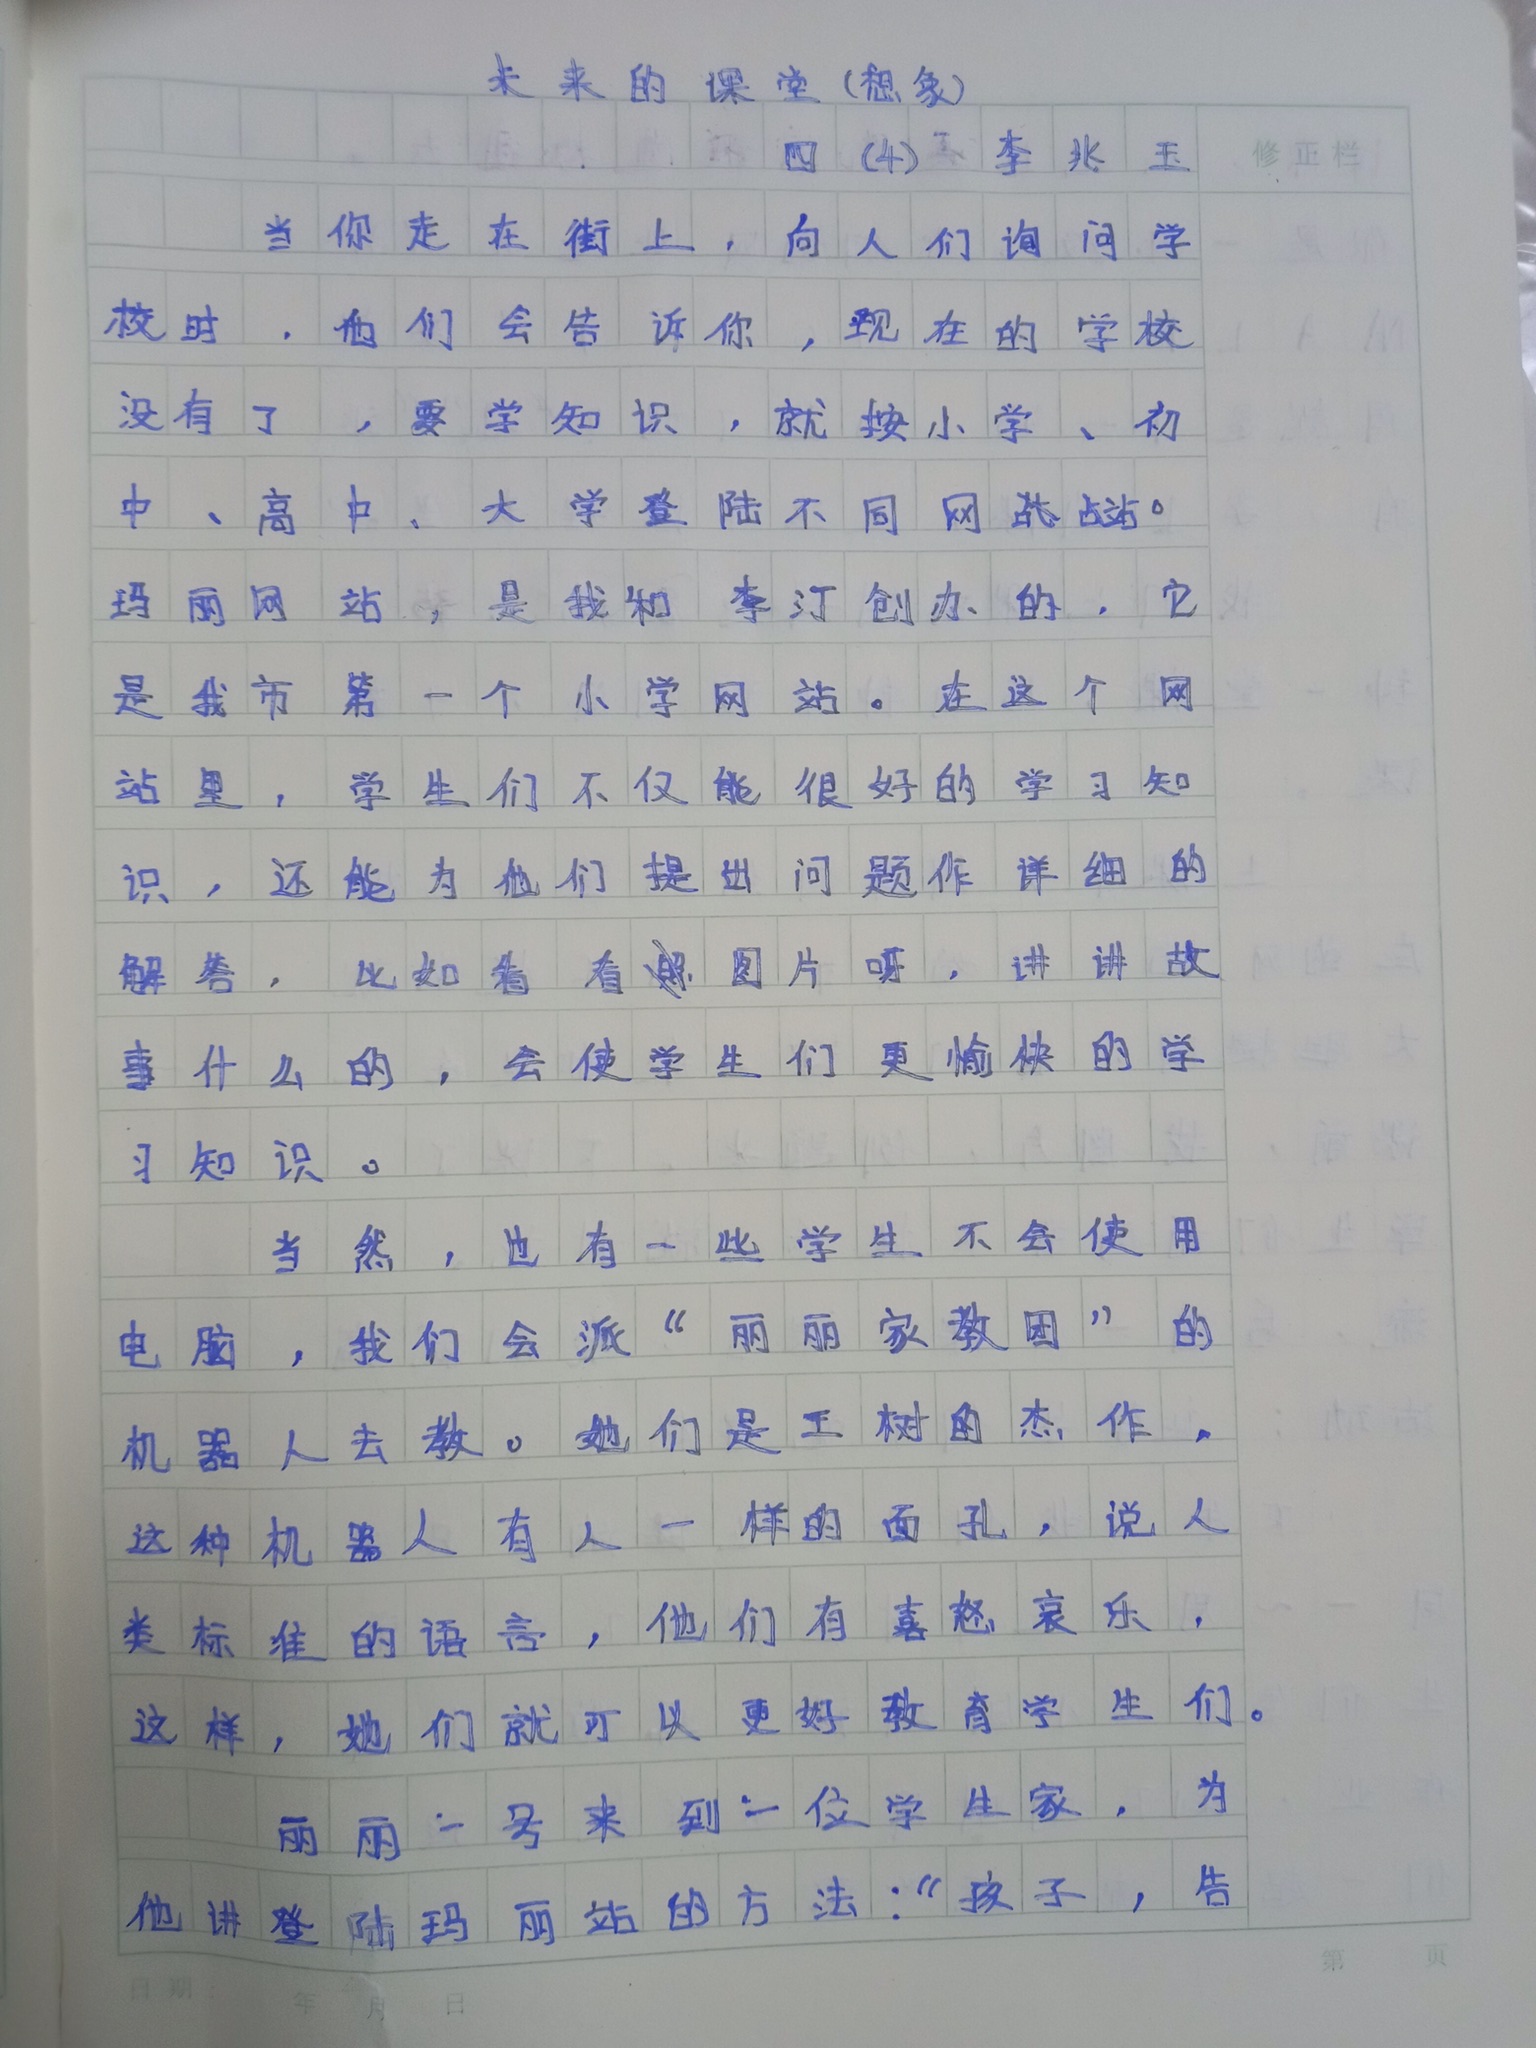 未来的课堂（想象）
四（4） 李兆玉
修正栏
当你走在街上，向人们询问学
校时，他们会告诉你，现在的学校
没有了，要学知识，就按小学、初
中、高中、大学登陆不同网站。
玛丽网站，是我和李汀创办的，它
是我市第一个小学网站。在这个网
站里，学生们不仅能很好的学习知
识，还能为他们提出问题作详细的
解答，比如看看图片呀，讲讲故
事什么的，会使学生们更愉快的学
习知识。
当然，也有一些学生不会使用
电脑，我们会派“丽丽家教团”的
机器人去教。她们是王树的杰作，
这种机器人有人一样的面孔，说人
类标准的语言，他们有喜怒哀乐，
这样，她们就可以更好教育学生们。
丽丽一号来到一位学生家，为
他讲登陆玛丽站的方法：“孩子，告
日期： 年 月 日
第 页